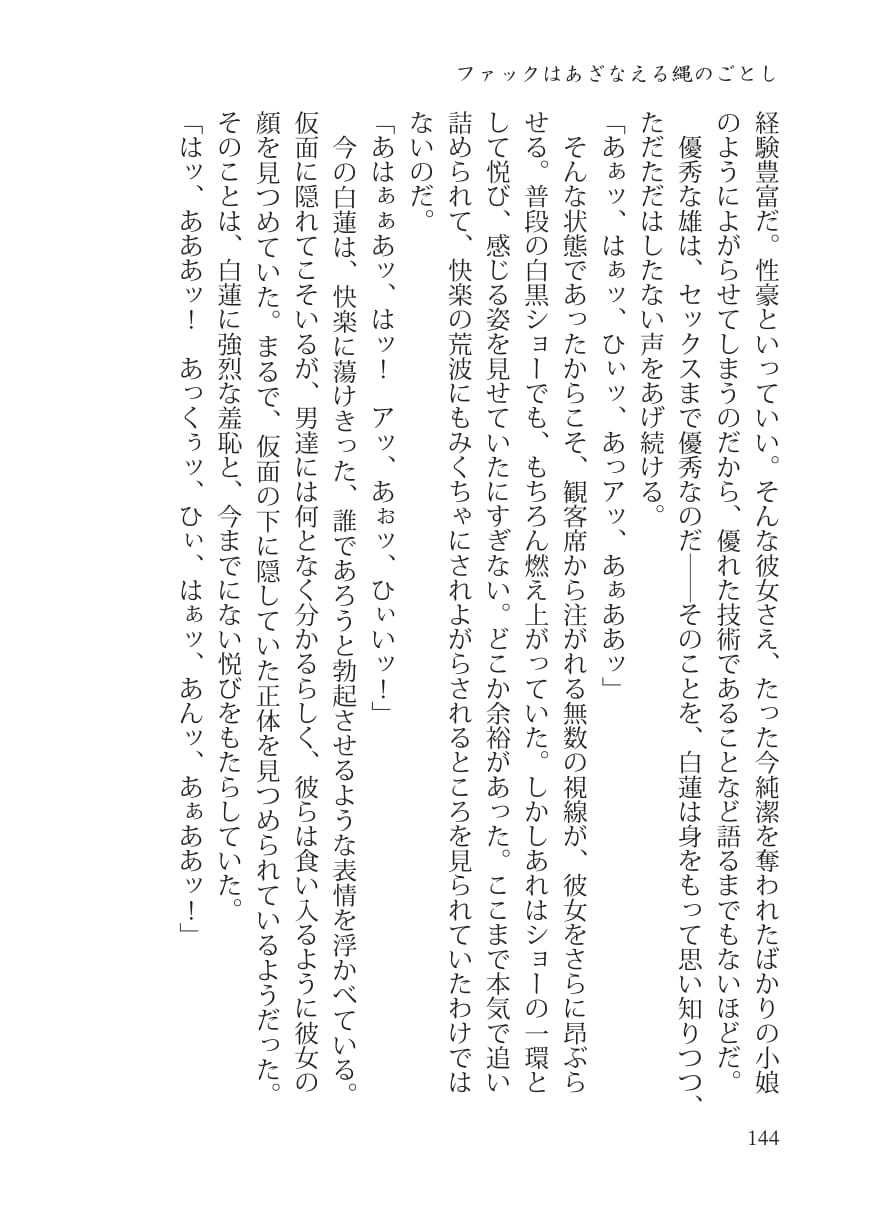 ファックはあざなえる縄のごとし
経験豊富だ。性豪といっていい。そんな彼女さえ、たった今純潔を奪われたばかりの小娘
のようによがらせてしまうのだから、優れた技術であることなど語るまでもないほどだ。
　優秀な雄は、セックスまで優秀なのだ――そのことを、白蓮は身をもって思い知りつつ、
ただただはしたない声をあげ続ける。
「あぁッ、はぁッ、ひぃッ、あっアッ、あぁああッ」
　そんな状態であったからこそ、観客席から注がれる無数の視線が、彼女をさらに昂ぶら
せる。普段の白黒ショーでも、もちろん燃え上がっていた。しかしあれはショーの一環と
して悦び、感じる姿を見せていたにすぎない。どこか余裕があった。ここまで本気で追い
詰められて、快楽の荒波にもみくちゃにされよがらされるところを見られていたわけでは
ないのだ。
「あはぁぁあッ、はッ！　アッ、あぉッ、ひぃいッ！」
　今の白蓮は、快楽に蕩けきった、誰であろうと勃起させるような表情を浮かべている。
仮面に隠れてこそいるが、男達には何となく分かるらしく、彼らは食い入るように彼女の
顔を見つめていた。まるで、仮面の下に隠していた正体を見つめられているようだった。
そのことは、白蓮に強烈な羞恥と、今までにない悦びをもたらしていた。
「はッ、あああッ！　あっくぅッ、ひぃ、はぁッ、あんッ、あぁああッ！」
144